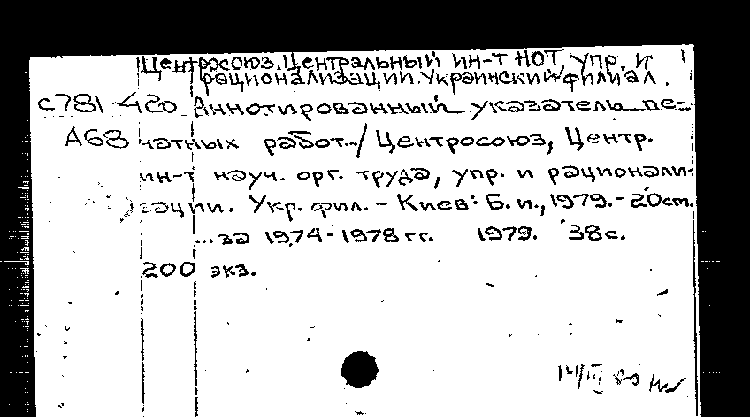 Центросоюз. Центральный ин-т НОТ, упр. и
рационализации. Украинский филиал.
с781 420 Аннотированный указатель пе-
А68 чатных работ. / Центросоюз, Центр.
ин-т науч. орг. труда, упр. и рационали-
зации. Укр. фил. - Киев: Б. и., 1979. - 20 см.
... за 1974-1978 гг. 1979. 38 с.
200 экз.